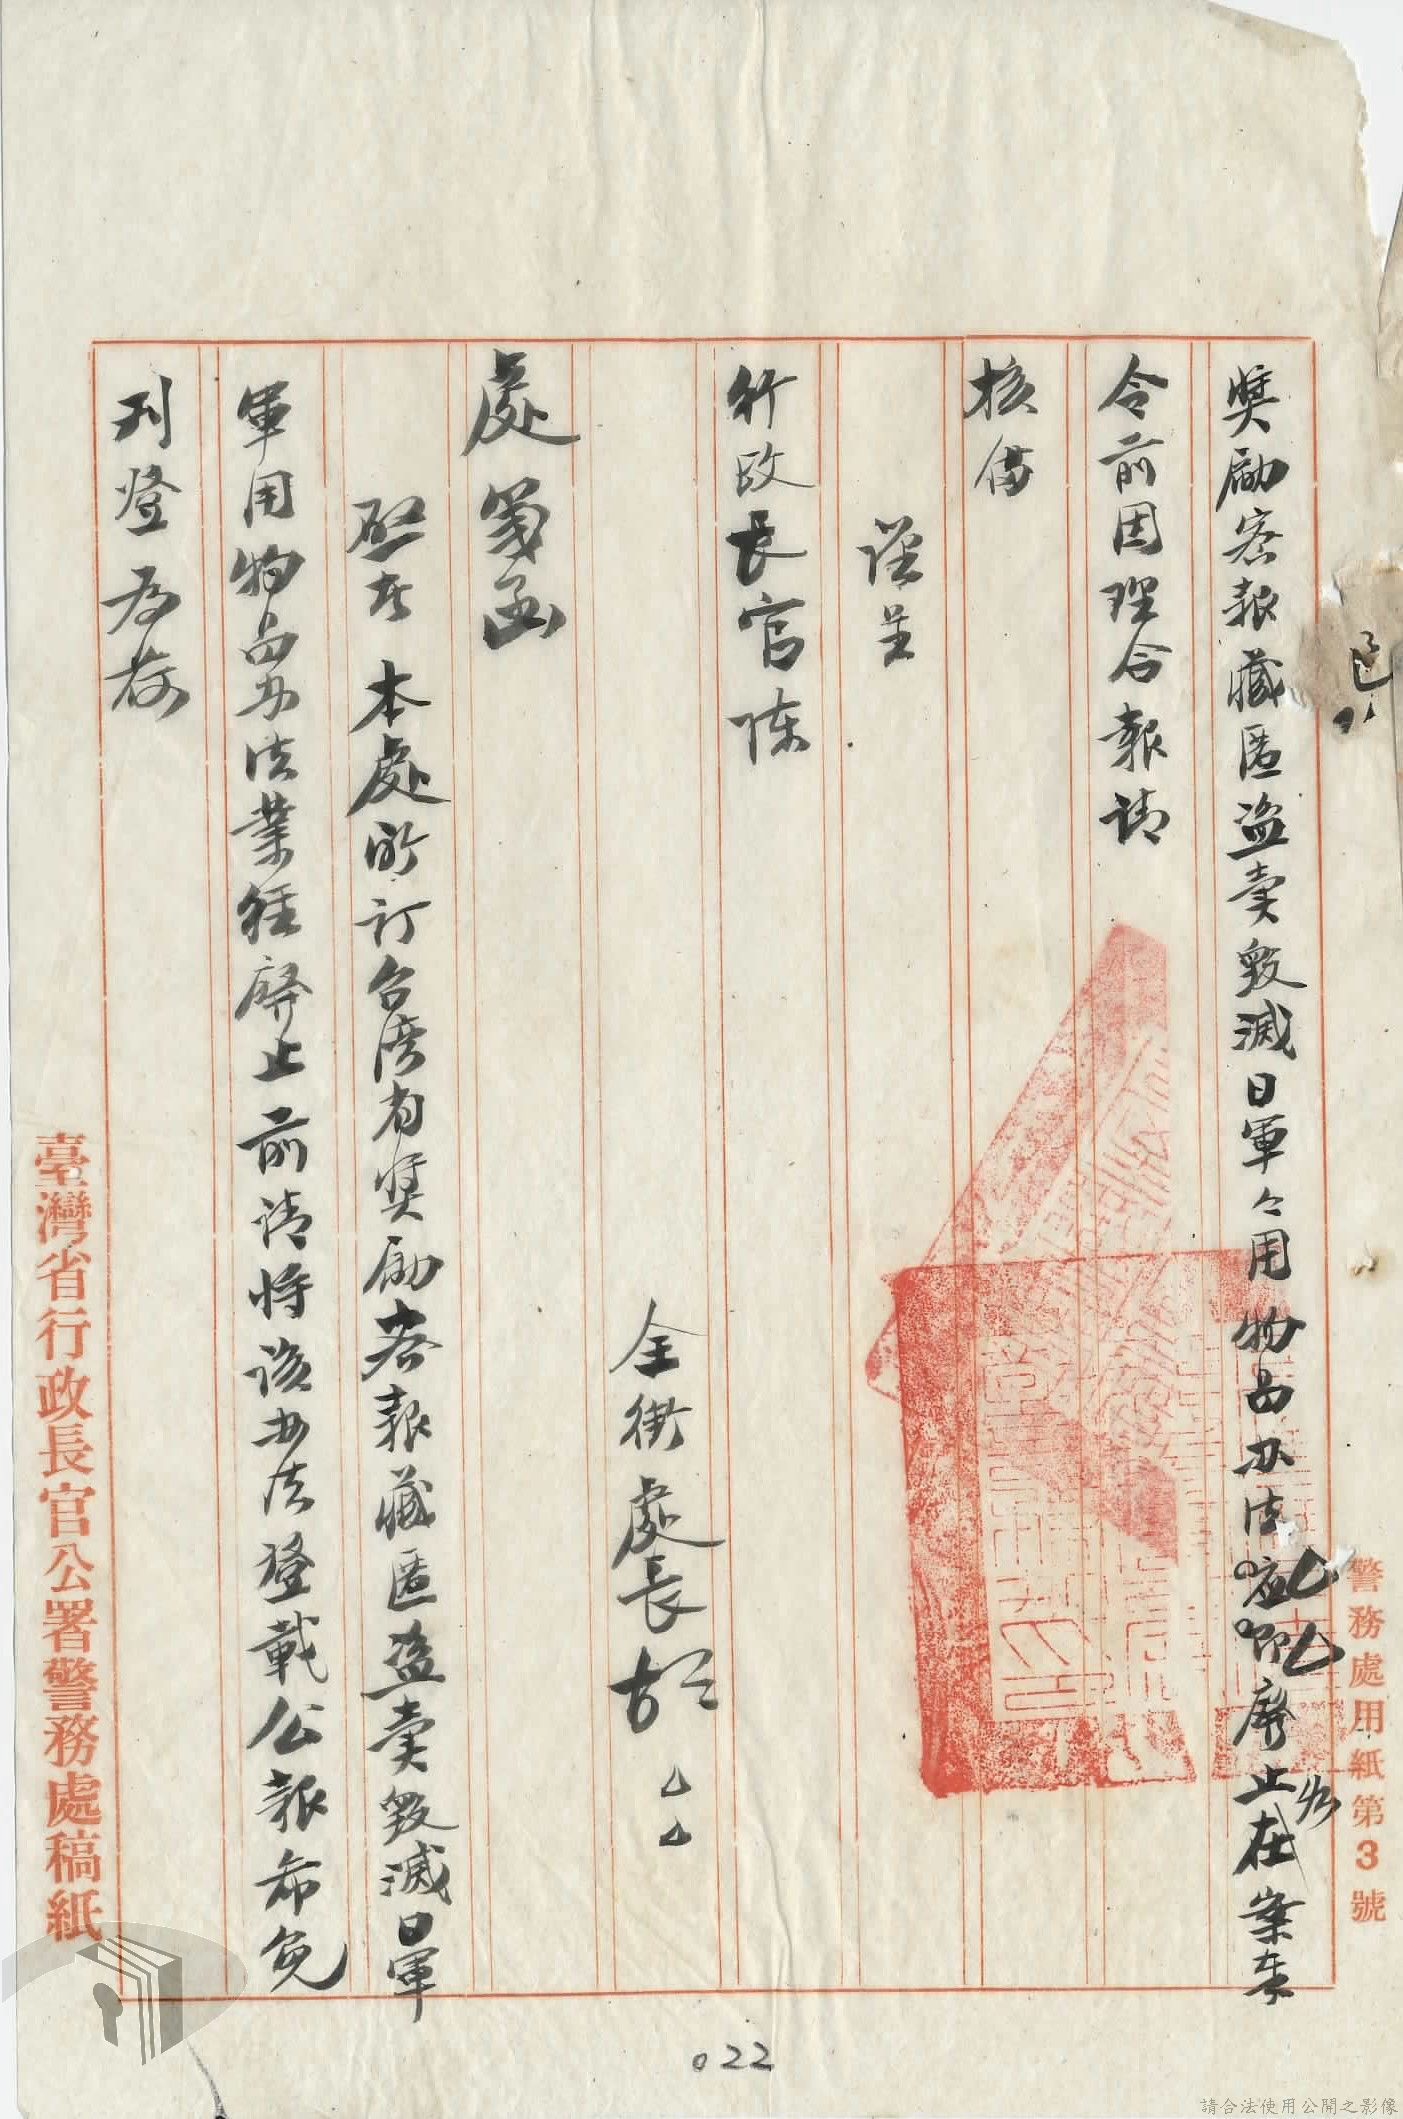 警務處用紙第3號
獎勵密報藏匿盜賣毀滅日軍々用物品办法應即廢止在案奉
令前因理合報請
核備
謹呈
行政長官陳
全銜處長胡
處箋函
逕啓者 本處所訂台湾省獎勵密報藏匿盜賣毀滅日軍
軍用物品办法業經廢止前請將該办法登載公報希免
刊登為荷
臺灣省行政長官公署警務處稿紙
022
請合法使用公開之影像